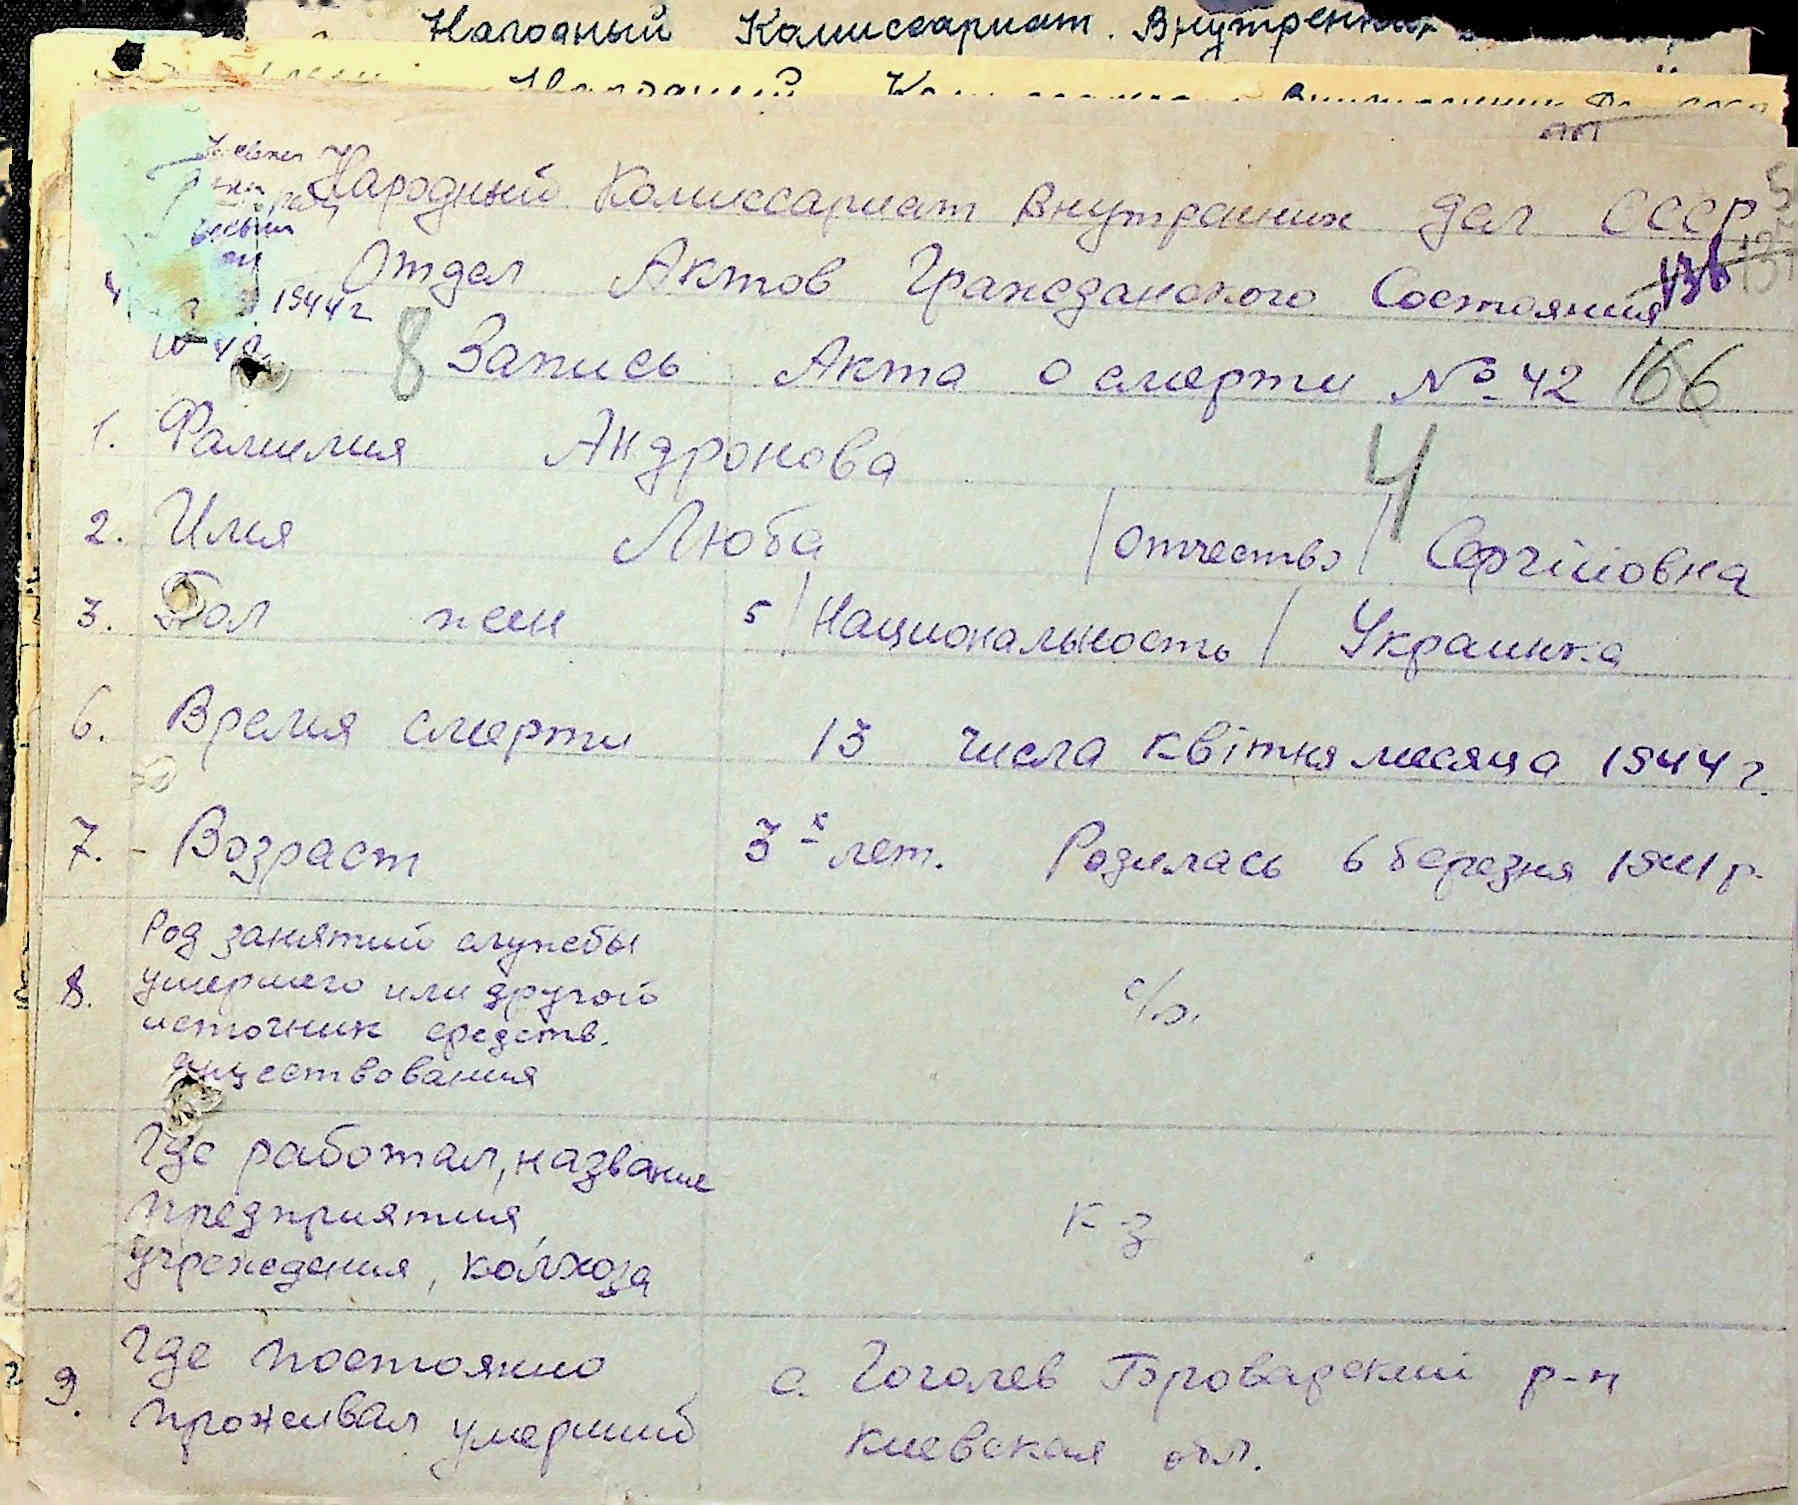 Народный Комиссариат Внутренних
Народный Комиссариат Внутренних Дел СССР
Отдел Актов Гражданского Состояния
1944 г
8 Запись Акта о смерти № 42 166
1. Фамилия Андронова
4
2. Имя Люба /Отчество/ Сергіиовна
3. Пол жен 5 /Национальность/ Украинка
6. Время смерти 13 числа квітня месяца 1944 г.
7. Возраст 3х лет. Родилась 6 березня 1941 р.
Род занятий службы
8. умершего или другой с/о.
источник средств.
существования
Где работал, название
предприятия, к-з
учреждения, колхоза
Где постоянно с. Гоголев Броварский р-н
9. проживал умерший Киевская обл.